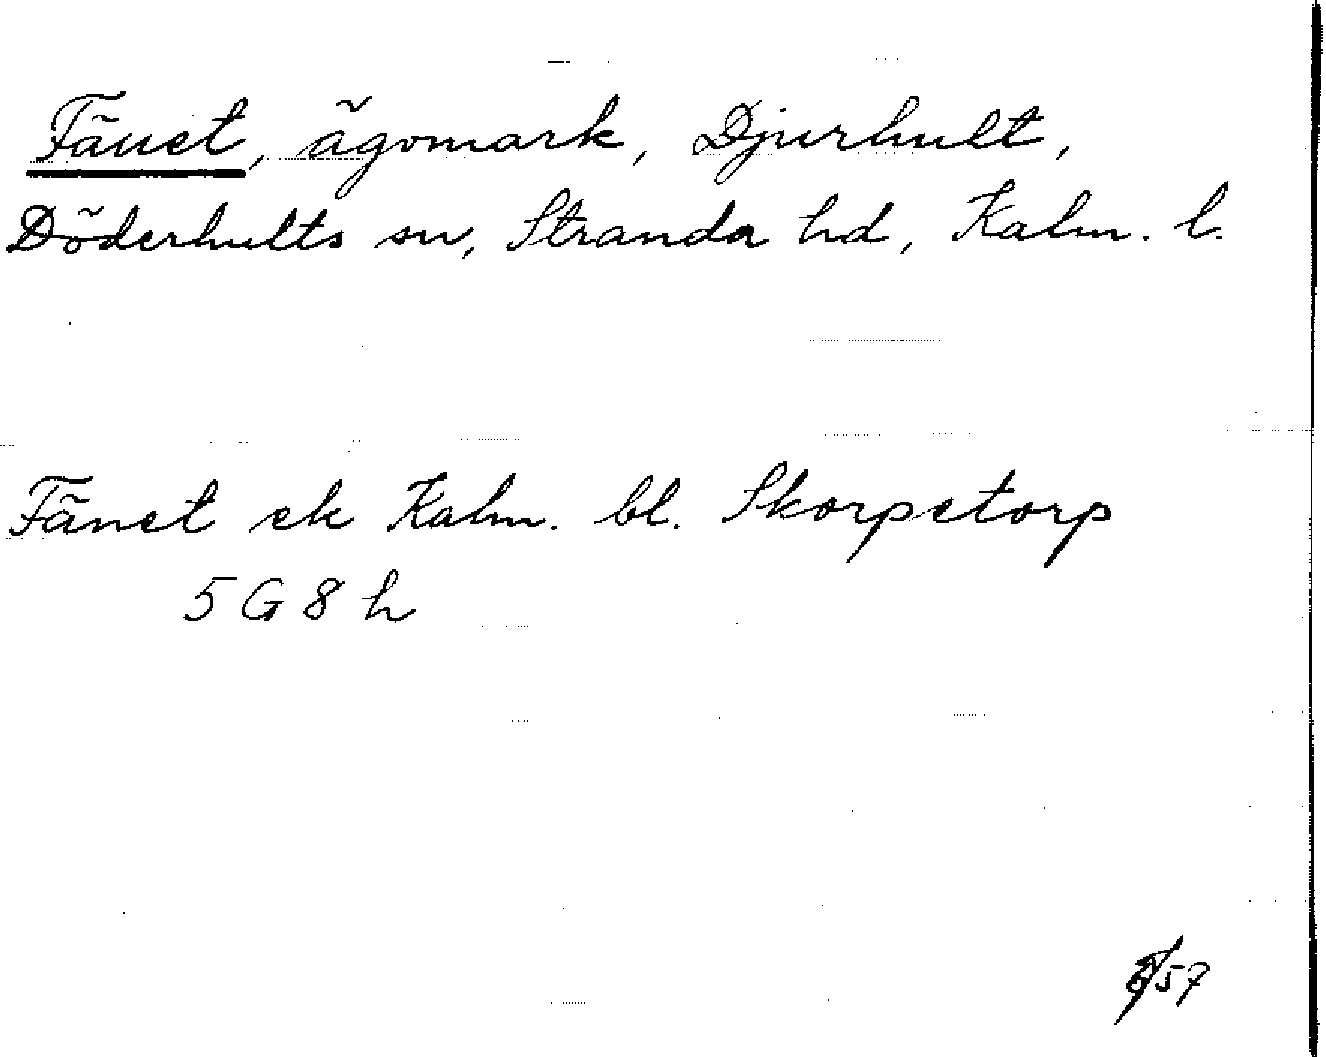 Fänet, ägomark, Djurhult,
Döderhults sn, Stranda hd, Kalm. l.
Fänet ek Kalm. bl. Skorpetorp
5 G 8 h